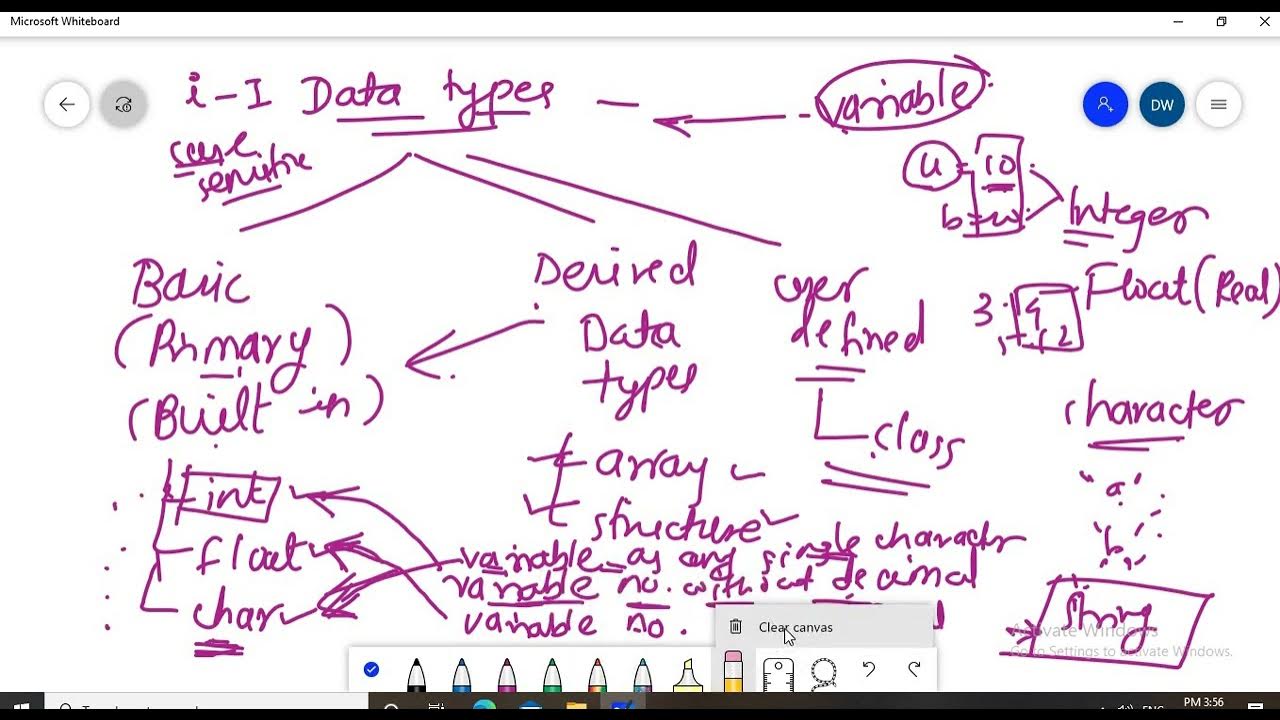 Microsoft Whiteboard
DW
i - I Data types —
variable
case
sensitive
a = 10
b =
Integer
Basic
(Primary)
(Built in)
Derived
Data
types
user
defined
class
3.14
Float (Real)
character
"a"
"b"
String
int
float
char
array
structure
variable = as any single character
variable no. without decimal
variable no.
Clear canvas
Activate Windows
Go to Settings to activate Windows.
ENG
PM 3:56